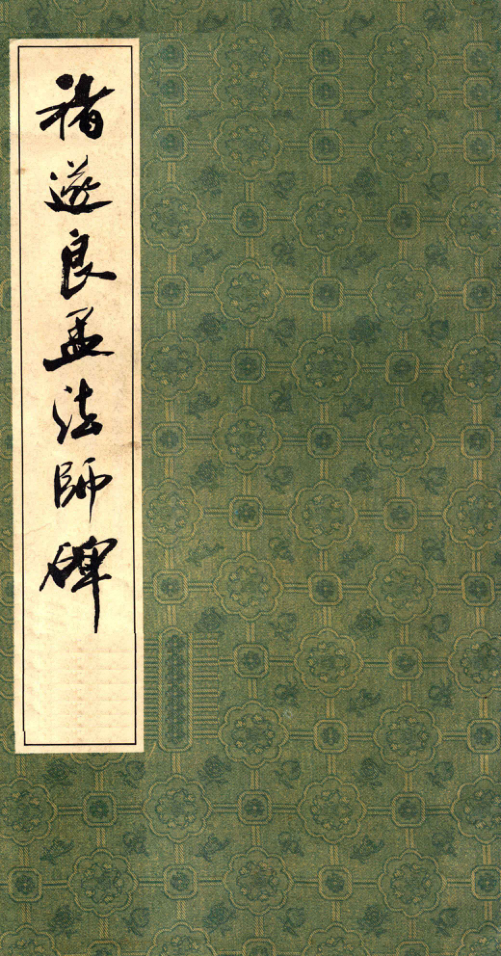 褚遂良孟法師碑